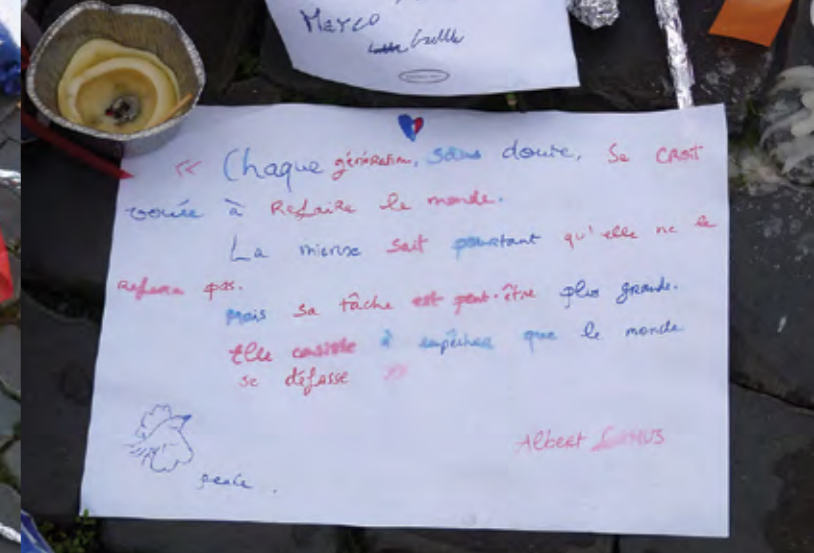 Marco
Gaëlle
« Chaque génération, sans doute, se croit
vouée à Refaire le monde.
La mienne sait pourtant qu'elle ne le
Refera pas.
Mais sa tâche est peut-être plus grande.
Elle consiste à empêcher que le monde
se défasse »
Albert CAMUS
peace.